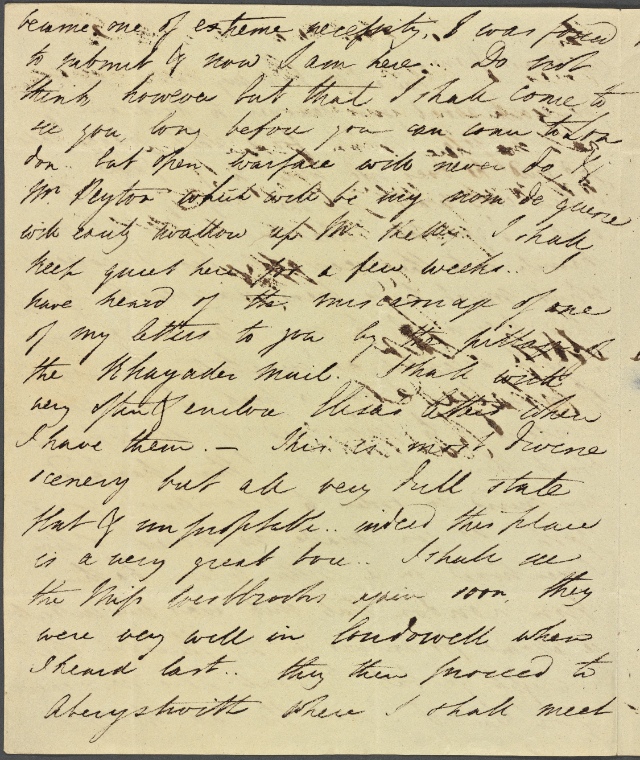 became one of extreme necessity, I was forced
to submit & now I am here.. Do not
think however but that I shall come to
see you long before you can come to Lon
don. but open warfare will never do, &
Mr Peyton which will be my nom de guerre
will easily swallow up Mr Shelley. I shall
keep quiet here for a few weeks.. I
have heard of the miscarriage of one
of my letters to you by the
the Rhayader mail. I shall write
very often & enclose Elizas letters when
I have them. — This is most divine
scenery but all very dull stale
flat & unprofitable.. indeed this place
is a very great bore.. I shall see
the Miss Westbrooks again soon, they
were very well in Condowell when
I heard last.. they then proceed to
Aberystwith where I shall meet